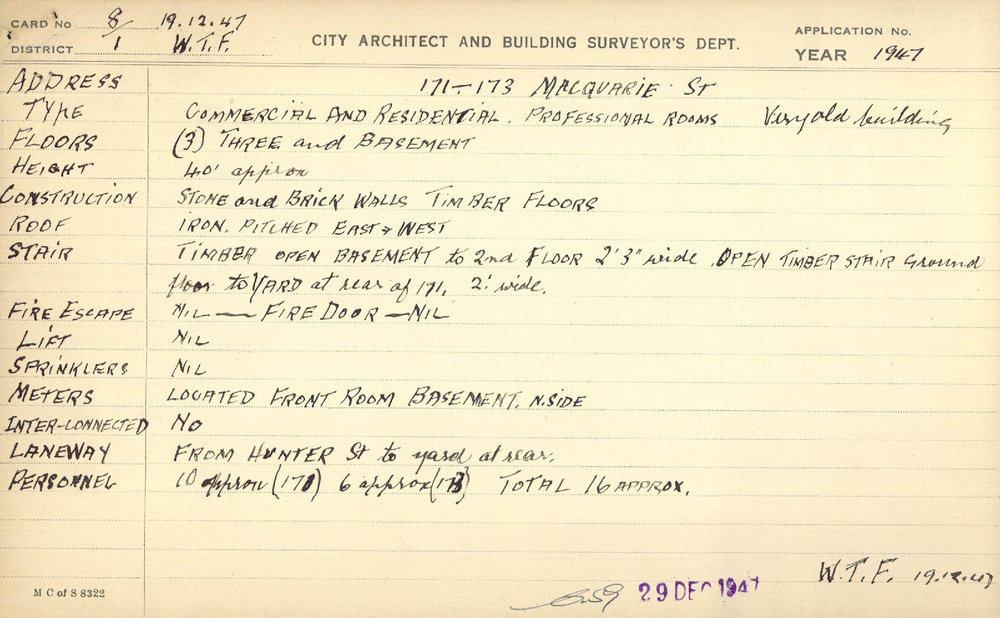 CARD No 8 19.12.47
DISTRICT 1 W.T.F.
CITY ARCHITECT AND BUILDING SURVEYOR'S DEPT.
APPLICATION No.
YEAR 1947
ADDRESS 171-173 MACQUARIE ST
TYPE COMMERCIAL AND RESIDENTIAL. PROFESSIONAL ROOMS Very old building
FLOORS (3) THREE and BASEMENT
HEIGHT 40' approx
CONSTRUCTION STONE and BRICK WALLS TIMBER FLOORS
ROOF IRON. PITCHED EAST & WEST
STAIR TIMBER OPEN BASEMENT to 2nd FLOOR 2'3" wide. OPEN TIMBER STAIR Ground
floor to YARD at rear of 171. 2' wide.
FIRE ESCAPE NIL — FIRE DOOR — NIL
LIFT NIL
SPRINKLERS NIL
METERS LOCATED FRONT ROOM BASEMENT. N.SIDE
INTER-CONNECTED No
LANEWAY FROM HUNTER St to yard at rear.
PERSONNEL 10 approx (171) 6 approx (173) TOTAL 16 APPROX.
W.T.F. 19.12.47
M C of S 8322
29 DEC 1947